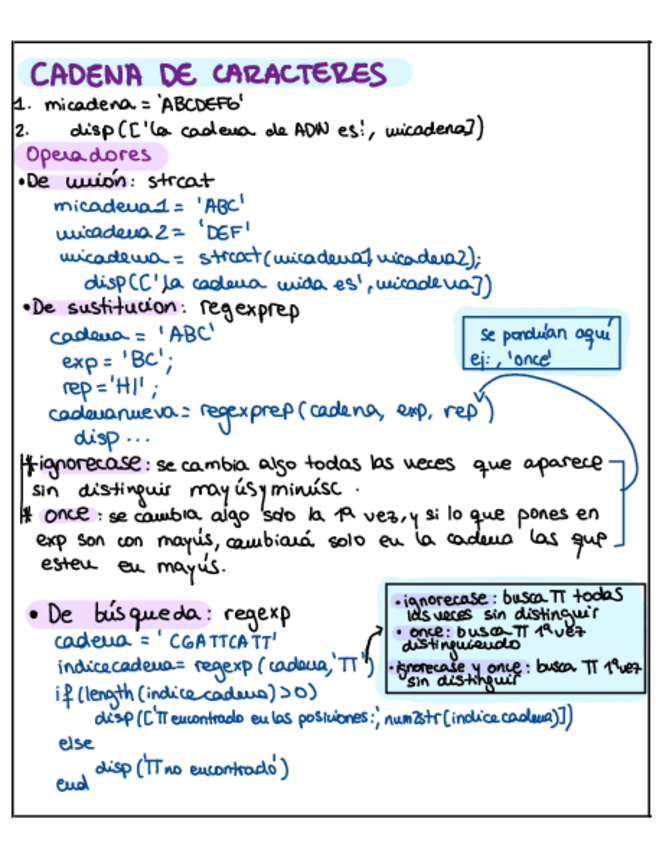 CADENA DE CARACTERES
1. micadena = 'ABCDEFG'
2. disp(['la cadena de ADN es:', micadena])
Operadores
•De unión: strcat
micadena1 = 'ABC'
micadena2 = 'DEF'
micadena = strcat(micadena1, micadena2);
disp(['la cadena unida es', micadena])
•De sustitucion: regexprep
cadena = 'ABC'
exp = 'BC';
rep = 'HI';
cadenanueva = regexprep(cadena, exp, rep )
disp ...
se pondrían aquí
ej: , 'once'
* ignorecase: se cambia algo todas las veces que aparece
sin distinguir mayús y minúsc.
* once: se cambia algo solo la 1ª vez, y si lo que pones en
exp son con mayús, cambiará solo en la cadena las que
esten en mayús.
• De búsqueda: regexp
cadena = 'CGATTCATT'
indicecadena = regexp(cadena, 'TT')
if(length(indicecadena)>0)
disp(['TT encontrado en las posiciones:', num2str(indicecadena)])
else
disp('TT no encontrado')
end
• ignorecase: busca TT todas
las veces sin distinguir
• once: busca TT 1ª vez
distinguiendo
• ignorecase y once: busca TT 1ª vez
sin distinguir